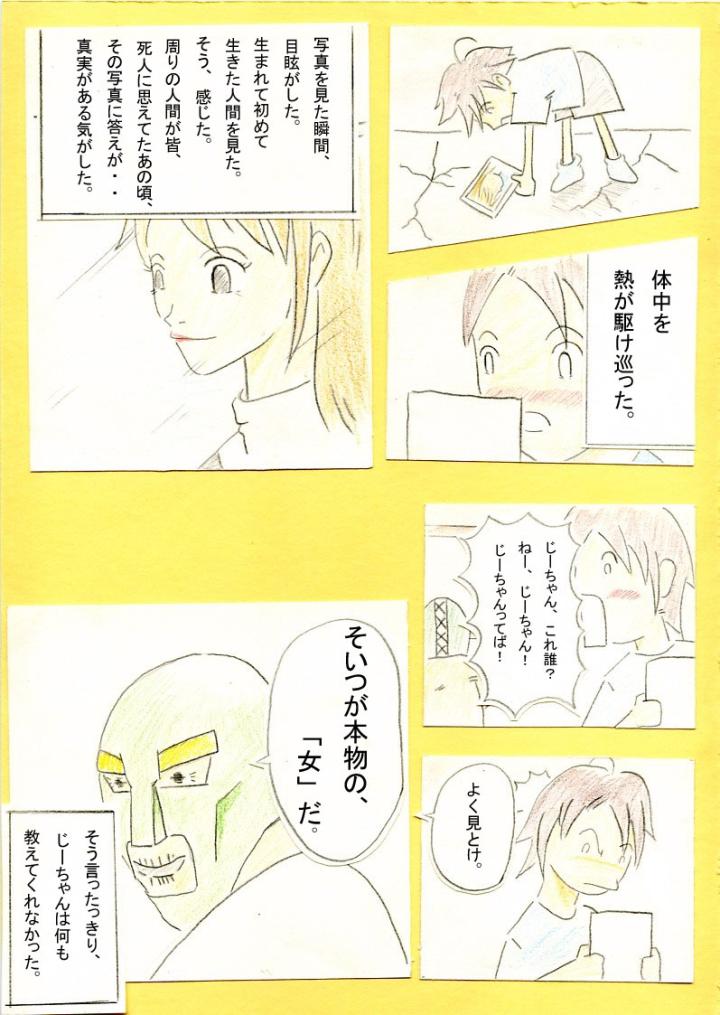 体中を
熱が駆け巡った。
写真を見た瞬間、
目眩がした。
生まれて初めて
生きた人間を見た。
そう、感じた。
周りの人間が皆、
死人に思えてたあの頃、
その写真に答えが・・
真実がある気がした。
じーちゃん、これ誰？
ねー、じーちゃん！
じーちゃんってば！
よく見とけ。
そいつが本物の、
「女」だ。
そう言ったっきり、
じーちゃんは何も
教えてくれなかった。